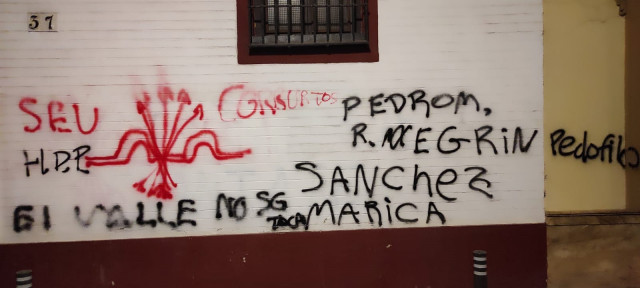 37
SEU
CORRUPTOS
H.D.P
PEDROM,
R. NEGRiN
Pedofilo
SANChEZ
MARiCA
El VALLE NO SE
TOCA